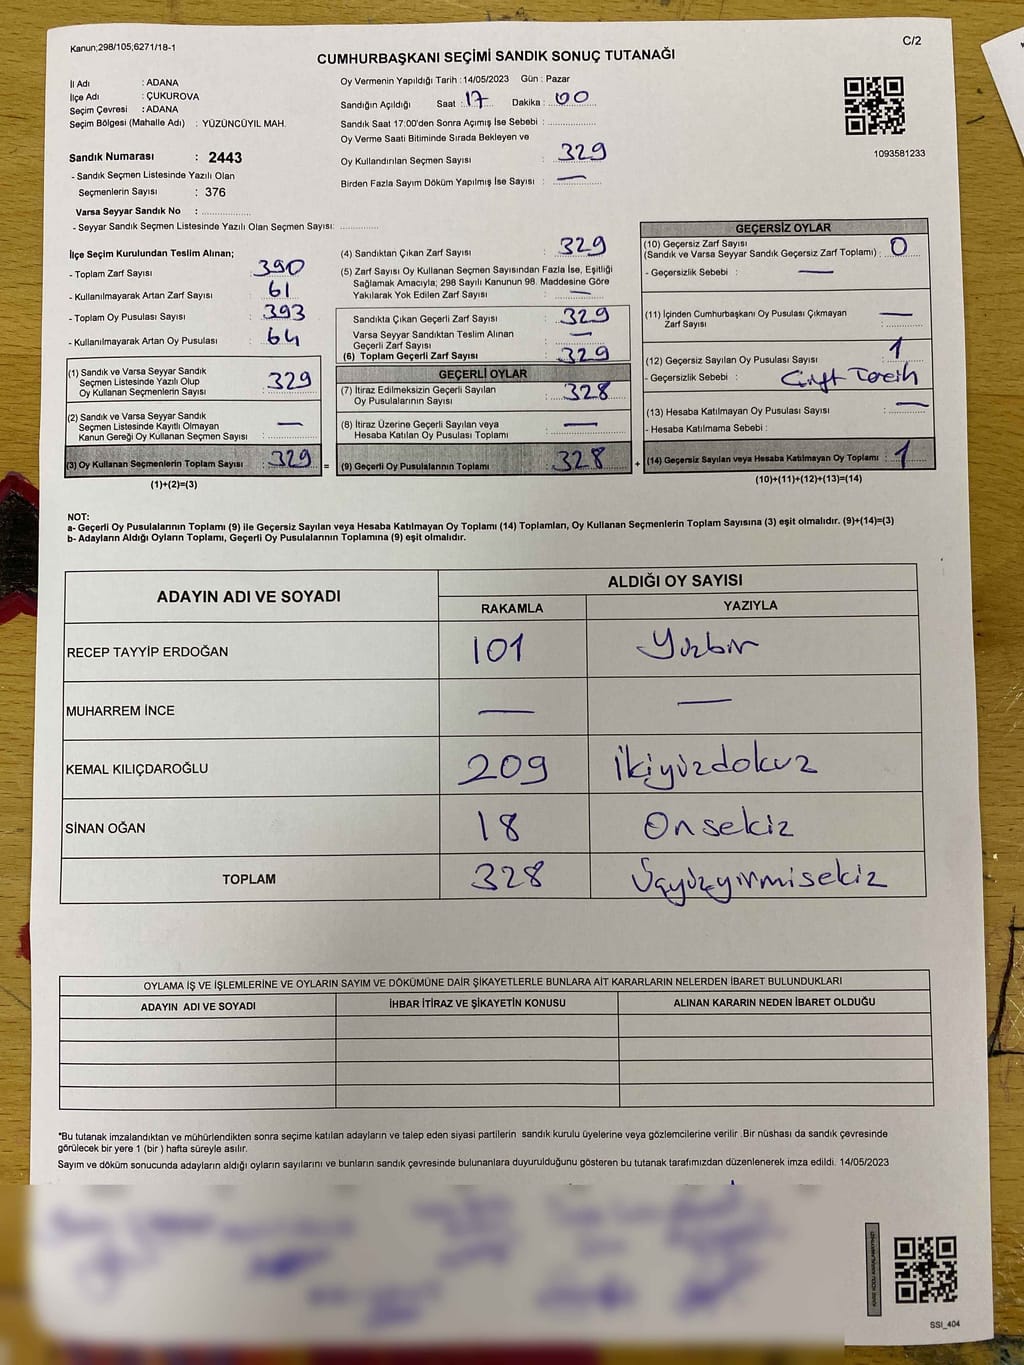 Kanun;298/105,6271/18-1
C/2
CUMHURBAŞKANI SEÇİMİ SANDIK SONUÇ TUTANAĞI
İl Adı : ADANA
İlçe Adı : ÇUKUROVA
Seçim Çevresi : ADANA
Seçim Bölgesi (Mahalle Adı) : YÜZÜNCÜYIL MAH.
Sandık Numarası : 2443
- Sandık Seçmen Listesinde Yazılı Olan
Seçmenlerin Sayısı : 376
Varsa Seyyar Sandık No : ................
- Seyyar Sandık Seçmen Listesinde Yazılı Olan Seçmen Sayısı: .............
Oy Vermenin Yapıldığı Tarih :14/05/2023 Gün : Pazar
Sandığın Açıldığı Saat : 17 Dakika : 00
Sandık Saat 17:00'den Sonra Açımış İse Sebebi : ................
Oy Verme Saati Bitiminde Sırada Bekleyen ve
Oy Kullandırılan Seçmen Sayısı : 329
Birden Fazla Sayım Döküm Yapılmış İse Sayısı : —
1093581233
İlçe Seçim Kurulundan Teslim Alınan;
- Toplam Zarf Sayısı : 390
- Kullanılmayarak Artan Zarf Sayısı : 61
- Toplam Oy Pusulası Sayısı : 393
- Kullanılmayarak Artan Oy Pusulası : 64
(1) Sandık ve Varsa Seyyar Sandık
Seçmen Listesinde Yazılı Olup
Oy Kullanan Seçmenlerin Sayısı : 329
(2) Sandık ve Varsa Seyyar Sandık
Seçmen Listesinde Kayıtlı Olmayan
Kanun Gereği Oy Kullanan Seçmen Sayısı : —
(3) Oy Kullanan Seçmenlerin Toplam Sayısı : 329
(1)+(2)=(3)
=
(4) Sandıktan Çıkan Zarf Sayısı : 329
(5) Zarf Sayısı Oy Kullanan Seçmen Sayısından Fazla İse, Eşitliği
Sağlamak Amacıyla; 298 Sayılı Kanunun 98. Maddesine Göre
Yakılarak Yok Edilen Zarf Sayısı : —
Sandıkta Çıkan Geçerli Zarf Sayısı : 329
Varsa Seyyar Sandıktan Teslim Alınan
Geçerli Zarf Sayısı : —
(6) Toplam Geçerli Zarf Sayısı : 329
GEÇERLİ OYLAR
(7) İtiraz Edilmeksizin Geçerli Sayılan
Oy Pusulalarının Sayısı : 328
(8) İtiraz Üzerine Geçerli Sayılan veya
Hesaba Katılan Oy Pusulası Toplamı : —
(9) Geçerli Oy Pusulalarının Toplamı : 328
+
GEÇERSİZ OYLAR
(10) Geçersiz Zarf Sayısı
(Sandık ve Varsa Seyyar Sandık Geçersiz Zarf Toplamı) : 0
- Geçersizlik Sebebi : —
(11) İçinden Cumhurbaşkanı Oy Pusulası Çıkmayan
Zarf Sayısı : —
(12) Geçersiz Sayılan Oy Pusulası Sayısı : 1
- Geçersizlik Sebebi : Çift Tercih
(13) Hesaba Katılmayan Oy Pusulası Sayısı : —
- Hesaba Katılmama Sebebi :
(14) Geçersiz Sayılan veya Hesaba Katılmayan Oy Toplamı : 1
(10)+(11)+(12)+(13)=(14)
NOT:
a- Geçerli Oy Pusulalarının Toplamı (9) ile Geçersiz Sayılan veya Hesaba Katılmayan Oy Toplamı (14) Toplamları, Oy Kullanan Seçmenlerin Toplam Sayısına (3) eşit olmalıdır. (9)+(14)=(3)
b- Adayların Aldığı Oyların Toplamı, Geçerli Oy Pusulalarının Toplamına (9) eşit olmalıdır.
ADAYIN ADI VE SOYADI
ALDIĞI OY SAYISI
RAKAMLA YAZIYLA
RECEP TAYYİP ERDOĞAN 101 Yüzbir
MUHARREM İNCE — —
KEMAL KILIÇDAROĞLU 209 İkiyüzdokuz
SİNAN OĞAN 18 Onsekiz
TOPLAM 328 Üçyüzyirmisekiz
OYLAMA İŞ VE İŞLEMLERİNE VE OYLARIN SAYIM VE DÖKÜMÜNE DAİR ŞİKAYETLERLE BUNLARA AİT KARARLARIN NELERDEN İBARET BULUNDUKLARI
ADAYIN ADI VE SOYADI İHBAR İTİRAZ VE ŞİKAYETİN KONUSU ALINAN KARARIN NEDEN İBARET OLDUĞU
*Bu tutanak imzalandıktan ve mühürlendikten sonra seçime katılan adayların ve talep eden siyasi partilerin sandık kurulu üyelerine veya gözlemcilerine verilir .Bir nüshası da sandık çevresinde
görülecek bir yere 1 (bir ) hafta süreyle asılır.
Sayım ve döküm sonucunda adayların aldığı oyların sayılarını ve bunların sandık çevresinde bulunanlara duyurulduğunu gösteren bu tutanak tarafımızdan düzenlenerek imza edildi. 14/05/2023
SSI_404